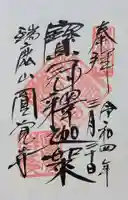 奉拝
令和四年
三月三十日
寶冠釋迦如来
瑞鹿山圓覚寺